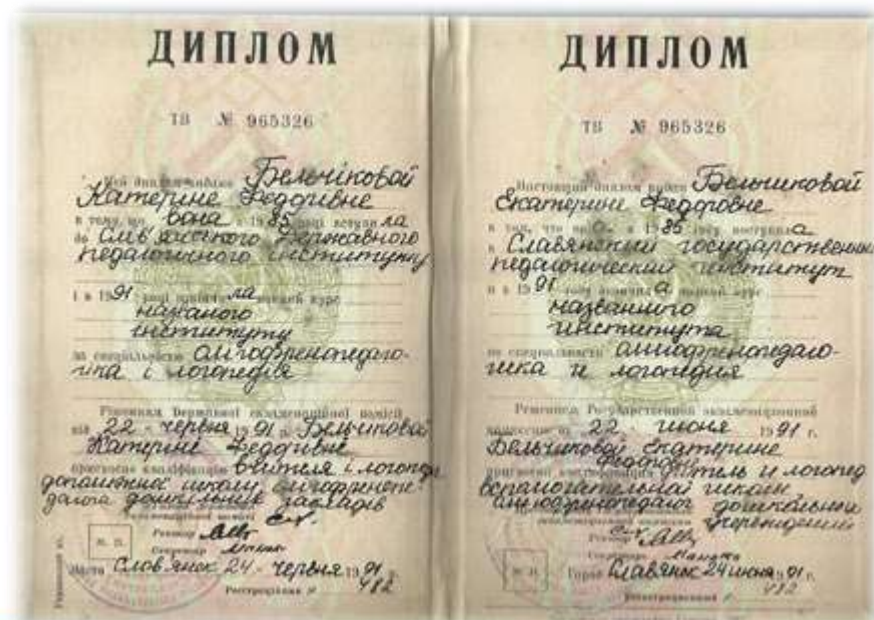 ДИПЛОМ
ТВ № 965326
Цей диплом видано Бельчіковой
Катерине Федоривне
в тому, що вона в 1985 році вступила
до Слов'янського Державного
педагогічного інституту
і в 1991 році
названого
інституту
за спеціальністю олігофренопедаго-
гіка і логопедія
Рішенням Державної екзаменаційної комісії
від 22 червня 1991 р. Бельчиковой
Катерині Федоривне
вчителя і логопеда
допоміжної школи, олігофренопе-
дагога дошкільних закладів
Ректор
Секретар
М. П.
Місто Слов'янск 24 червня 1991 р.
Реєстраційний № 482
ДИПЛОМ
ТВ № 965326
Настоящий диплом выдан Бельчиковой
Екатерине Федоровне
в том, что она в 1985 году поступила
в Славянский государственный
педагогический институт
и в 1991 году окончила полный курс
названного
института
по специальности олигофренопедаго-
гика и логопедия
Решением Государственной экзаменационной
комиссии от 22 июня 1991 г.
Бельчиковой Екатерине
Федоровне
учитель и логопед
вспомогательной школы,
олигофренопедагог дошкольных
учреждений
Ректор
Секретарь
М. П.
Город Славянск 24 июня 1991 г.
Регистрационный № 482